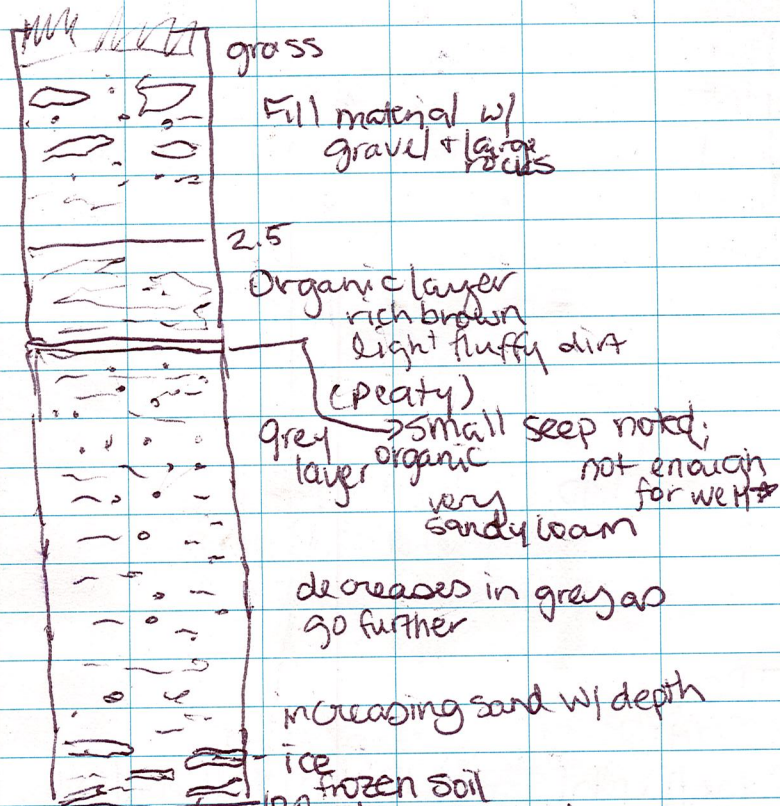 grass
Fill material w/
gravel + large
rocks
2.5
Organic layer
rich brown
light fluffy dirt
(peaty)
small seep noted;
not enough
for well*
grey
organic
layer
very
sandy loam
decreases in grey as
go further
increasing sand w/ depth
ice
frozen soil